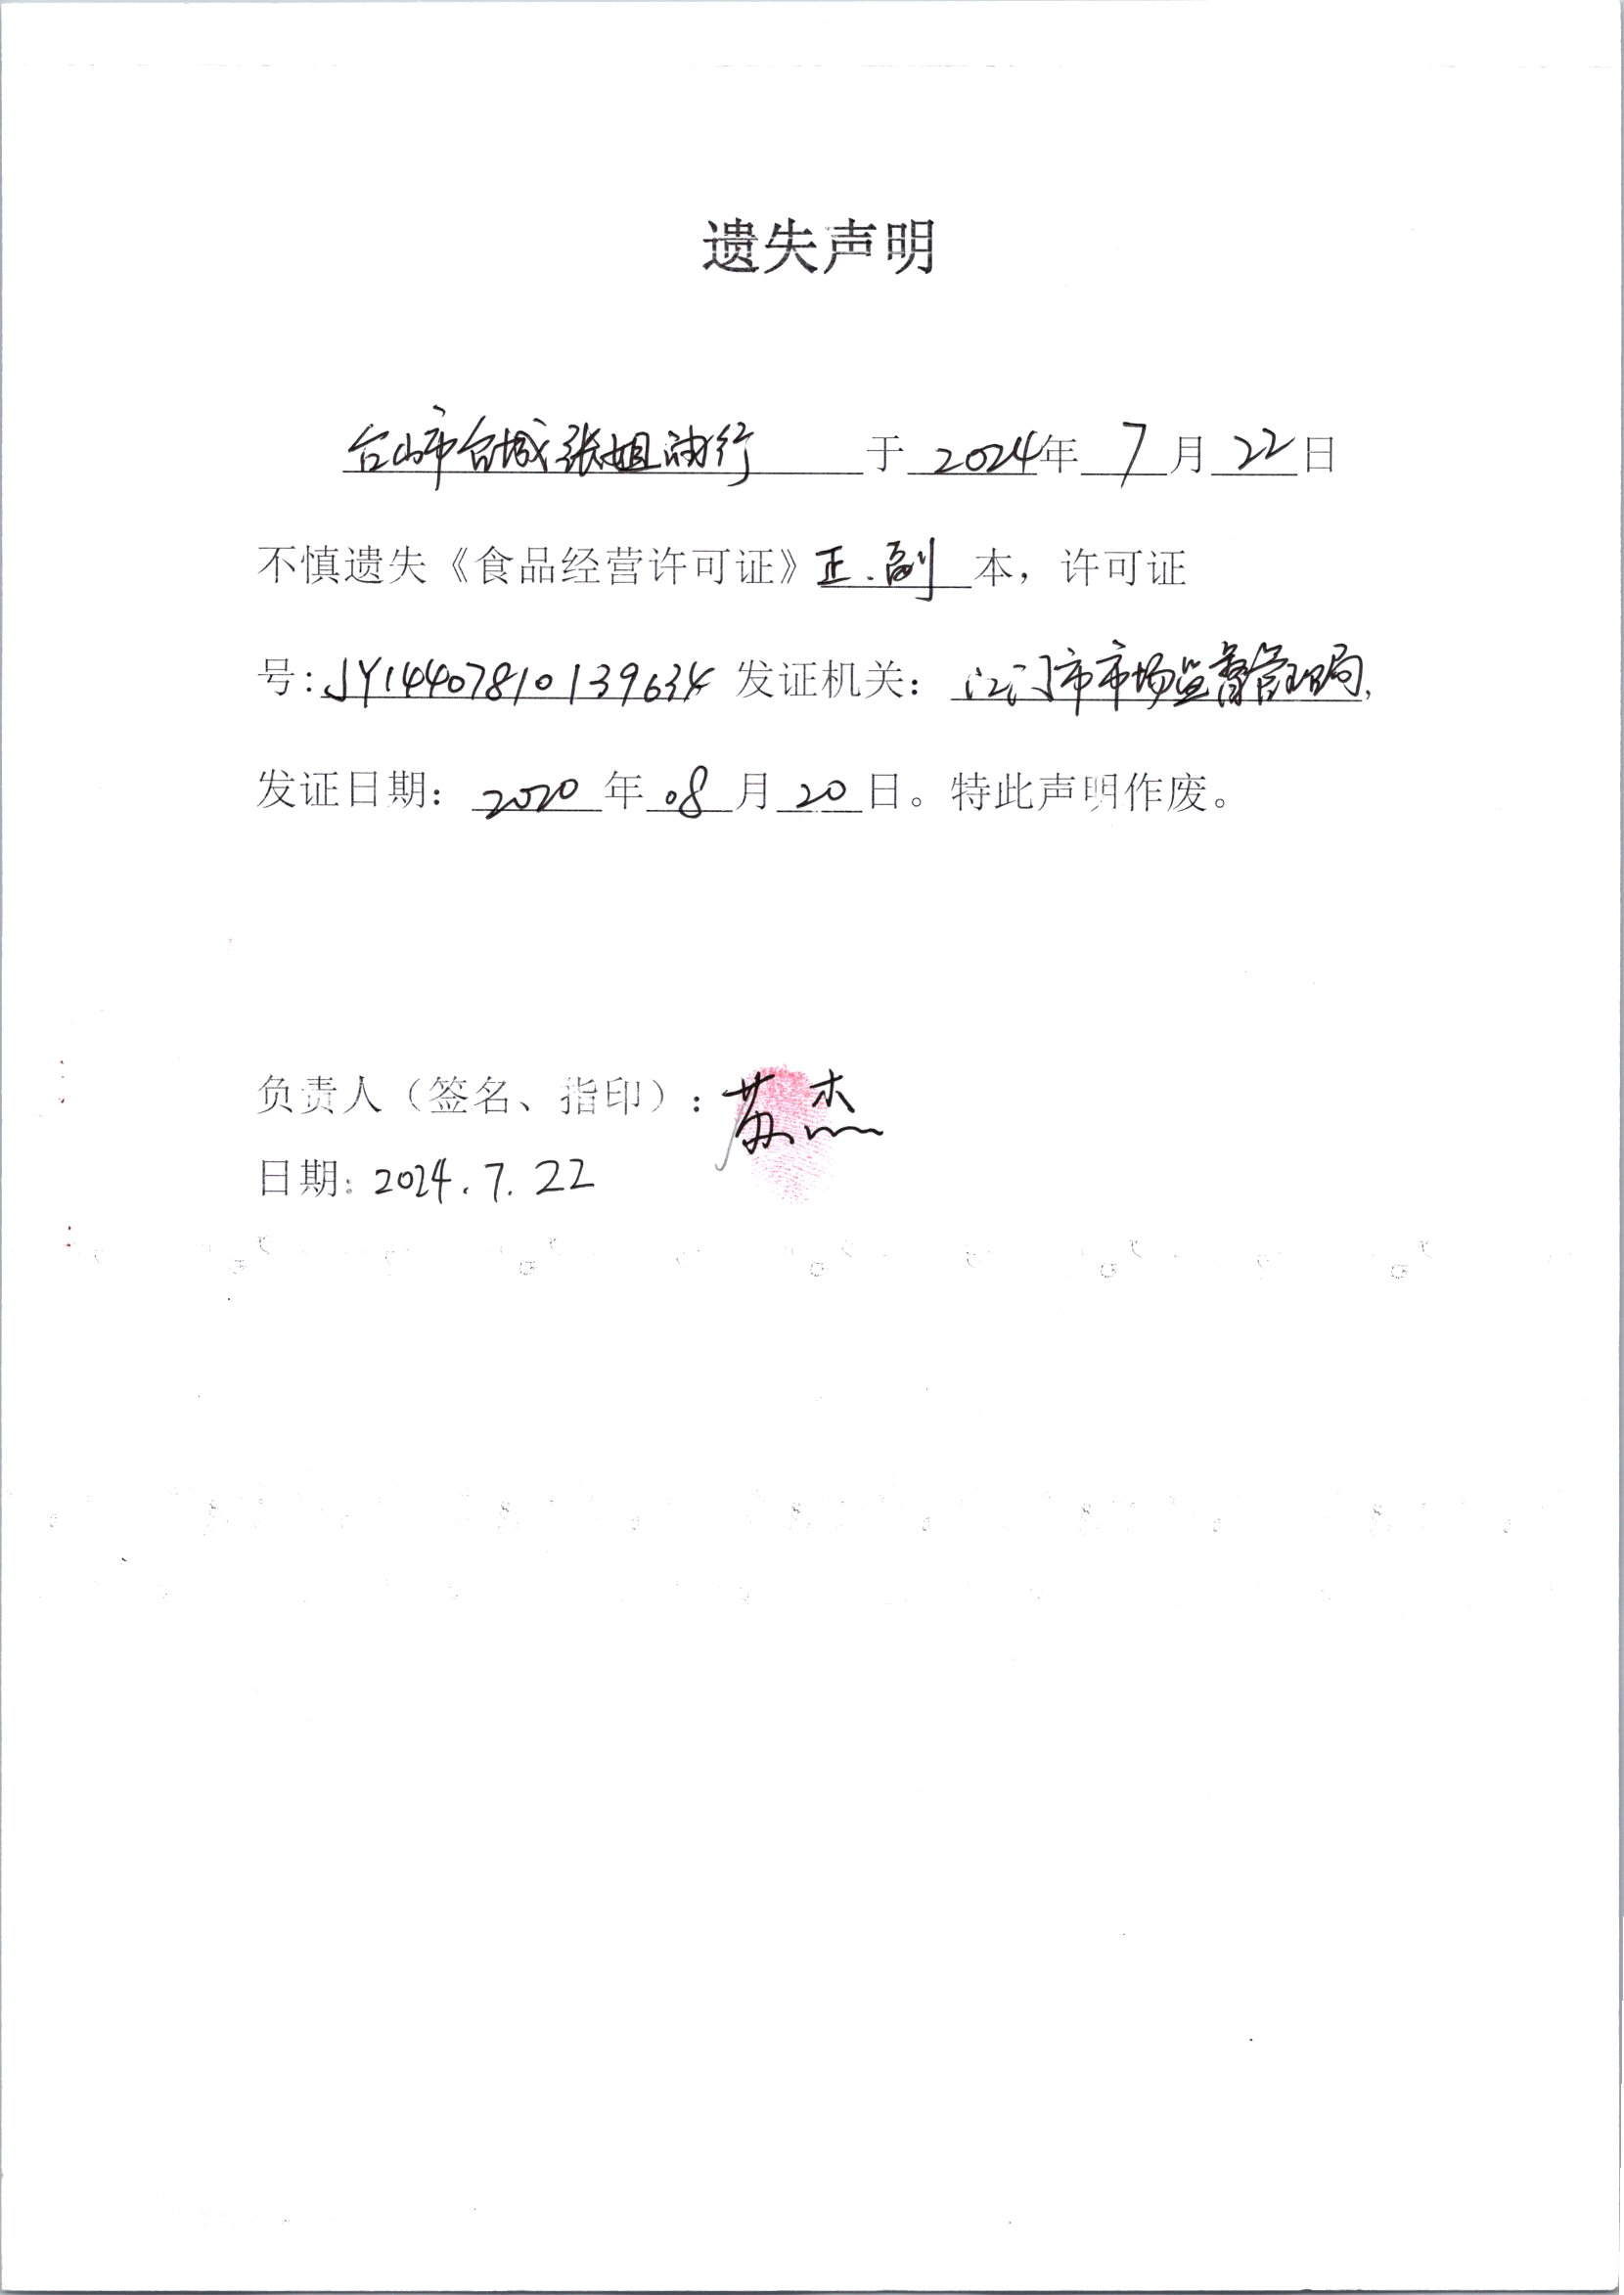 遗失声明
台山市台城张姐油行 于 2024年 7 月 22 日
不慎遗失《食品经营许可证》正.副 本，许可证
号:JY14407810139634 发证机关： 江门市市场监督管理局,
发证日期： 2020 年 08 月 20 日。特此声明作废。
负责人（签名、指印）：苏杰
日期: 2024.7.22